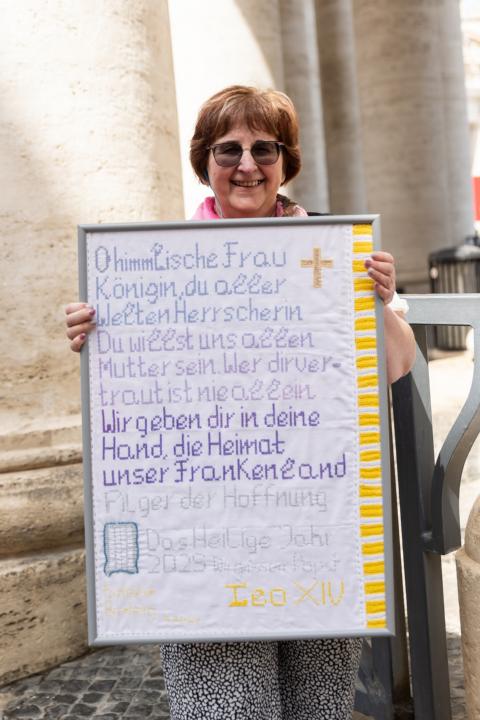 O himmlische Frau
Königin, du aller
Welten Herrscherin
Du willst uns allen
Mutter sein. Wer dir ver-
traut ist nie allein
Wir geben dir in deine
Hand, die Heimat
unser Frankenland
Pilger der Hoffnung
Das Heilige Jahr
2025
Leo XIV